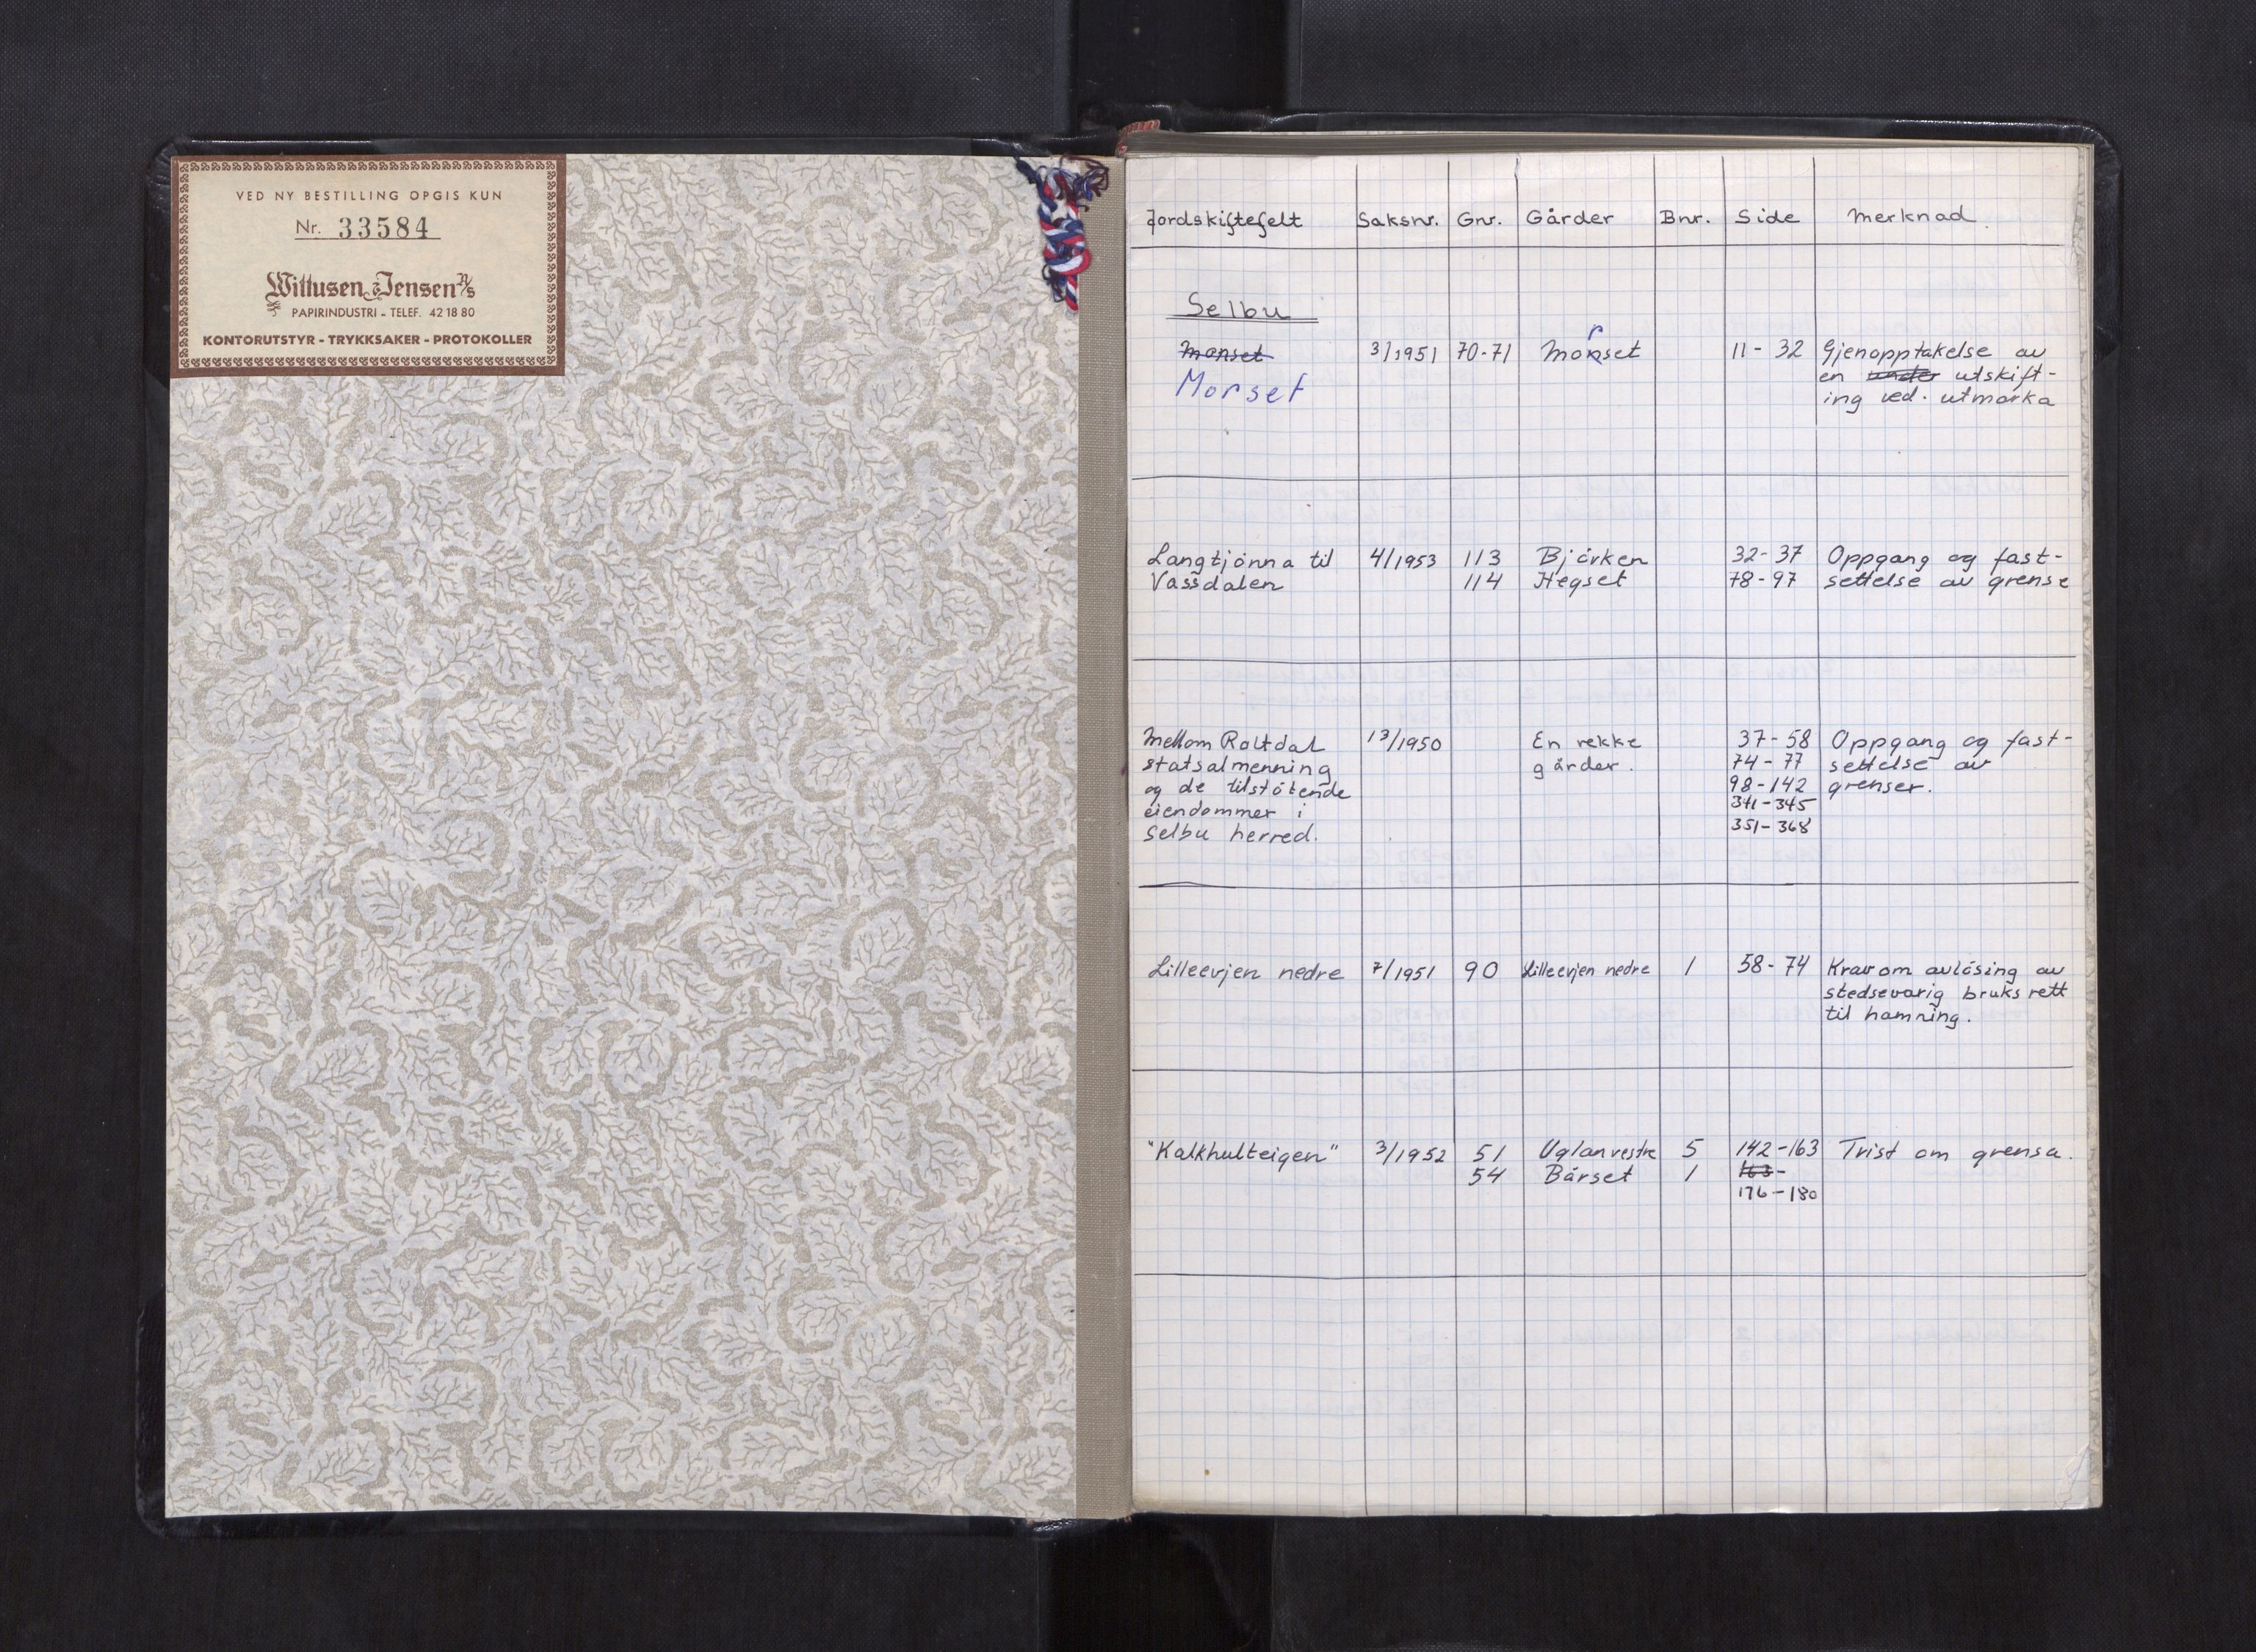 VED NY BESTILLING OPGIS KUN
Nr. 33584
Wittusen & Jensen A/S
PAPIRINDUSTRI - TELEF. 42 18 80
KONTORUTSTYR - TRYKKSAKER - PROTOKOLLER
Jordskiftefelt Saksnr. Gnr. Gårder Bnr. Side Merknad
Selbu
Monset 3/1951 70-71 Morset 11-32 Gjenopptakelse av
Morset en under utskift-
ing ved. utmarka
Langtjönna til 4/1953 113 Björken 32-37 Oppgang og fast-
Vassdalen 114 Hegset 78-97 settelse av grense
Mellom Roltdal 13/1950 En rekke 37-58 Oppgang og fast-
statsalmenning gårder. 74-77 settelse av
og de tilstötende 98-142 grenser.
eiendommer i 341-345
Selbu herred. 351-368
Lilleevjen nedre 7/1951 90 Lilleevjen nedre 1 58-74 Krav om avlösing av
stedsevarig bruksrett
til hamning.
"Kalkhulteigen" 3/1952 51 Uglan vestre 5 142-163 Trist om grensa.
54 Bårset 1 163-
176-180